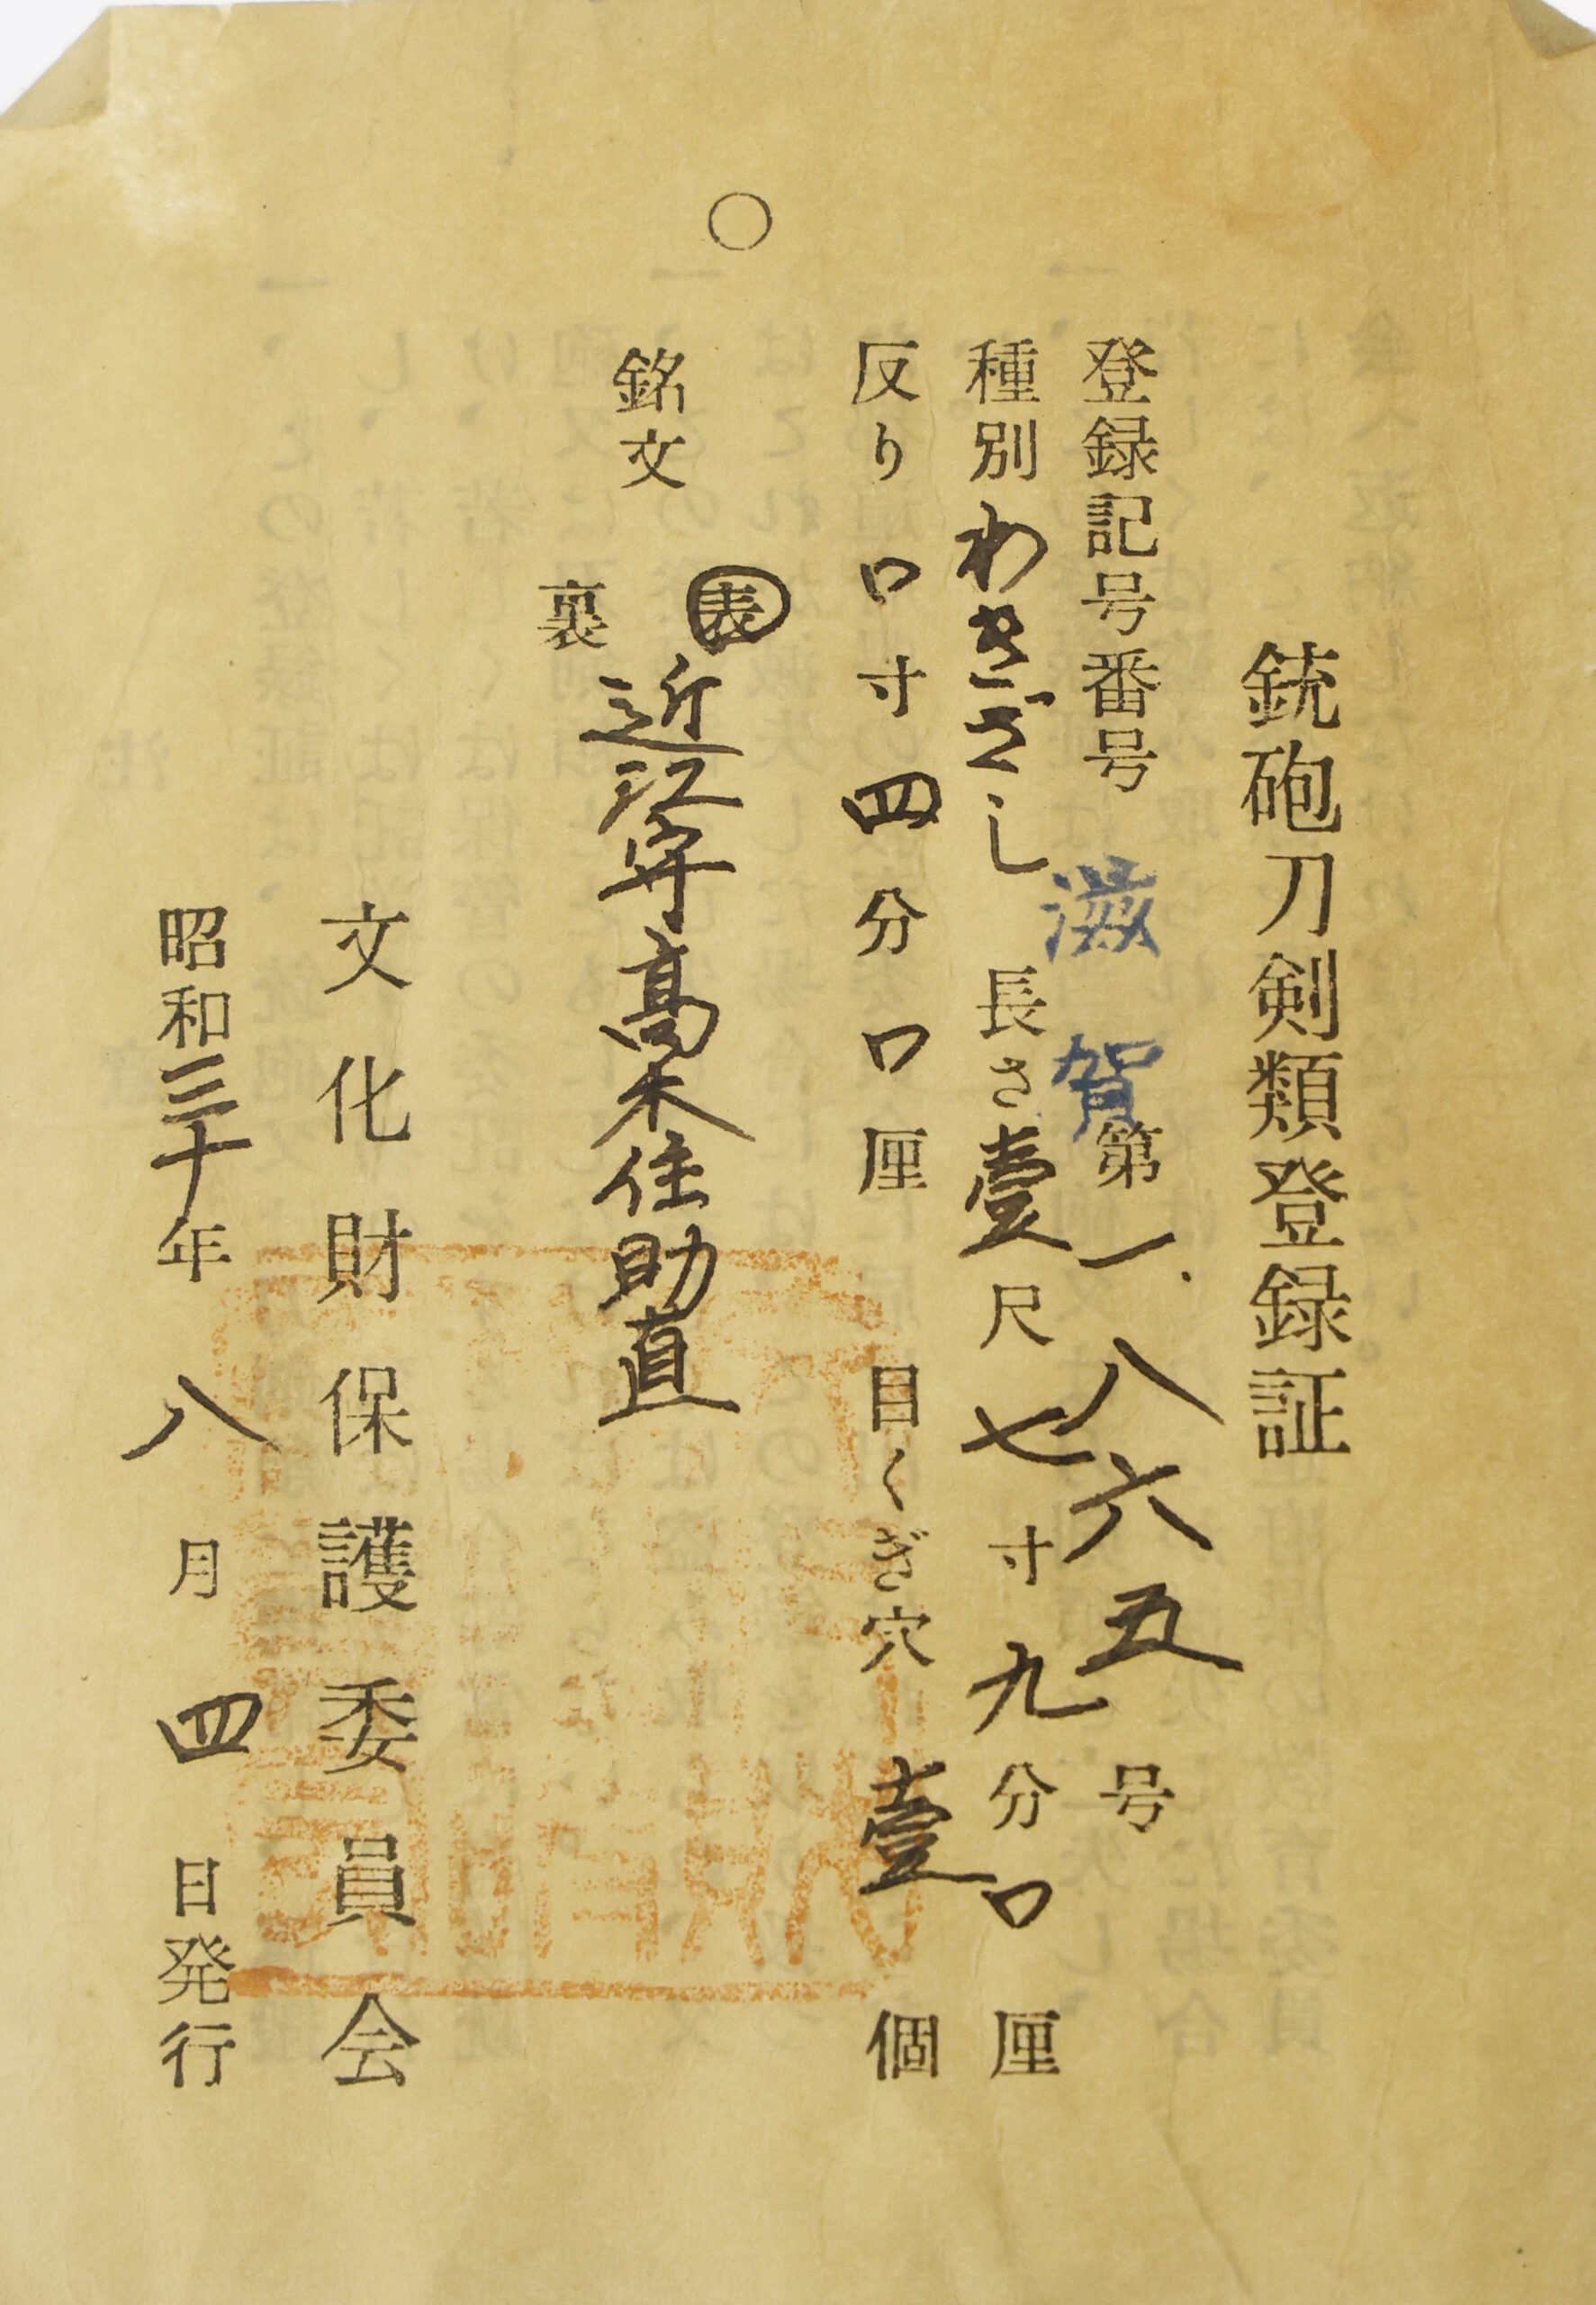 銃砲刀剣類登録証
登録記号番号 滋賀 第一八六五号
種別 わきざし 長さ 壹尺七寸九分口厘
反り 口寸四分口厘 目くぎ穴 壹個
○
銘文
表 近江守高木住助直
裏
文化財保護委員会
昭和三十年八月四日発行